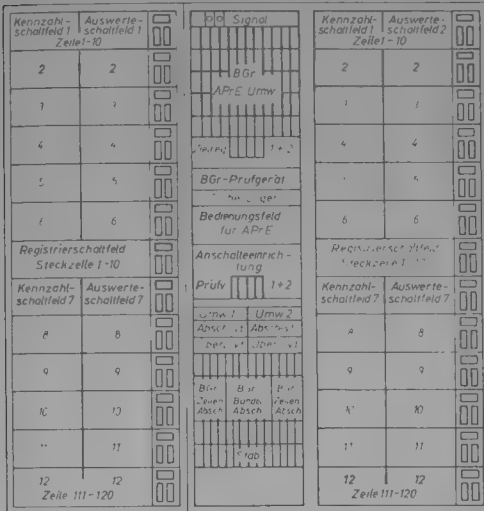 Kennzahl-
schaltfeld 1
Auswerte-
schaltfeld 1
Zeile 1-10
2 2
3 3
4 4
5 5
6 6
Registrierschaltfeld
Steckzeile 1-10
Kennzahl-
schaltfeld 7
Auswerte-
schaltfeld 7
8 8
9 9
10 10
11 11
12 12
Zeile 111-120
Signal
BGr
APrE Umw
1+2
BGr-Prüfgerät
Bedienungsfeld
für APrE
Anschalteeinrich-
tung
Prüfv 1+2
Umw 1 Umw 2
BGr
Zeilen
Absch
BGr
Bündel
Absch
BGr
Zeilen
Absch
Stab
Kennzahl-
schaltfeld 1
Auswerte-
schaltfeld 2
Zeile 1-10
2 2
4 4
5
6 6
Registrierschaltfeld
Steckzeile
Kennzahl-
schaltfeld 7
Auswerte-
schaltfeld 7
8 8
9 9
10 10
11 11
12 12
Zeile 111-120